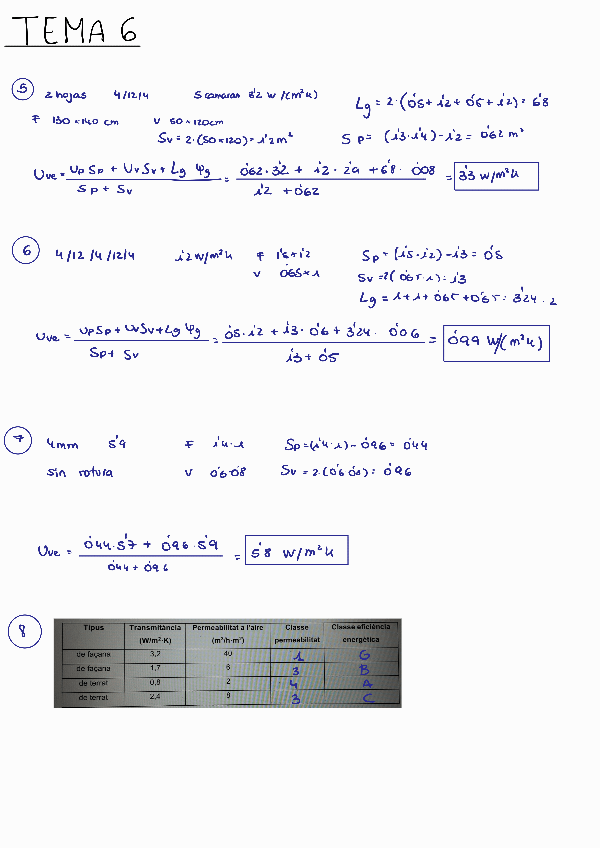 TEMA 6
5 2 hojas 4/12/4 5 camaras 3'2 W/(m²k) Lg = 2·(0'5+1'2+0'5+1'2) = 6'8
F 130×140 cm V 50×120cm
Sv = 2·(50×120) = 1'2 m² Sp = (1'3·1'4)-1'2 = 0'62 m²
Uve = UpSp + UvSv + Lg φg / Sp + Sv = 0'62·3'2 + 1'2·2'9 + 6'8·0'08 / 1'2 + 0'62 = 3'3 W/m²k
6 4/12/4/12/4 1'2 W/m²k F 1'5×1'2 Sp = (1'5·1'2)-1'3 = 0'5
V 0'65×1 Sv = 2(0'65·1) = 1'3
Lg = 1+1+0'65+0'65 = 3'24·2
Uve = UpSp + UvSv + Lg φg / Sp + Sv = 0'5·1'2 + 1'3·0'6 + 3'24·0'06 / 1'3 + 0'5 = 0'99 W/(m²k)
7 4mm 5'9 F 1'4·1 Sp = (1'4·1)-0'96 = 0'44
sin rotura V 0'6·0'8 Sv = 2·(0'6·0'8) = 0'96
Uve = 0'44·5'7 + 0'96·5'9 / 0'44 + 0'96 = 5'8 W/m²k
8
Tipus Transmitància (W/m²·K) Permeabilitat a l'aire (m³/h·m²) Classe permeabilitat Classe eficiència energètica
de façana 3,2 40 1 G
de façana 1,7 6 3 B
de terrat 0,8 2 4 A
de terrat 2,4 8 3 C